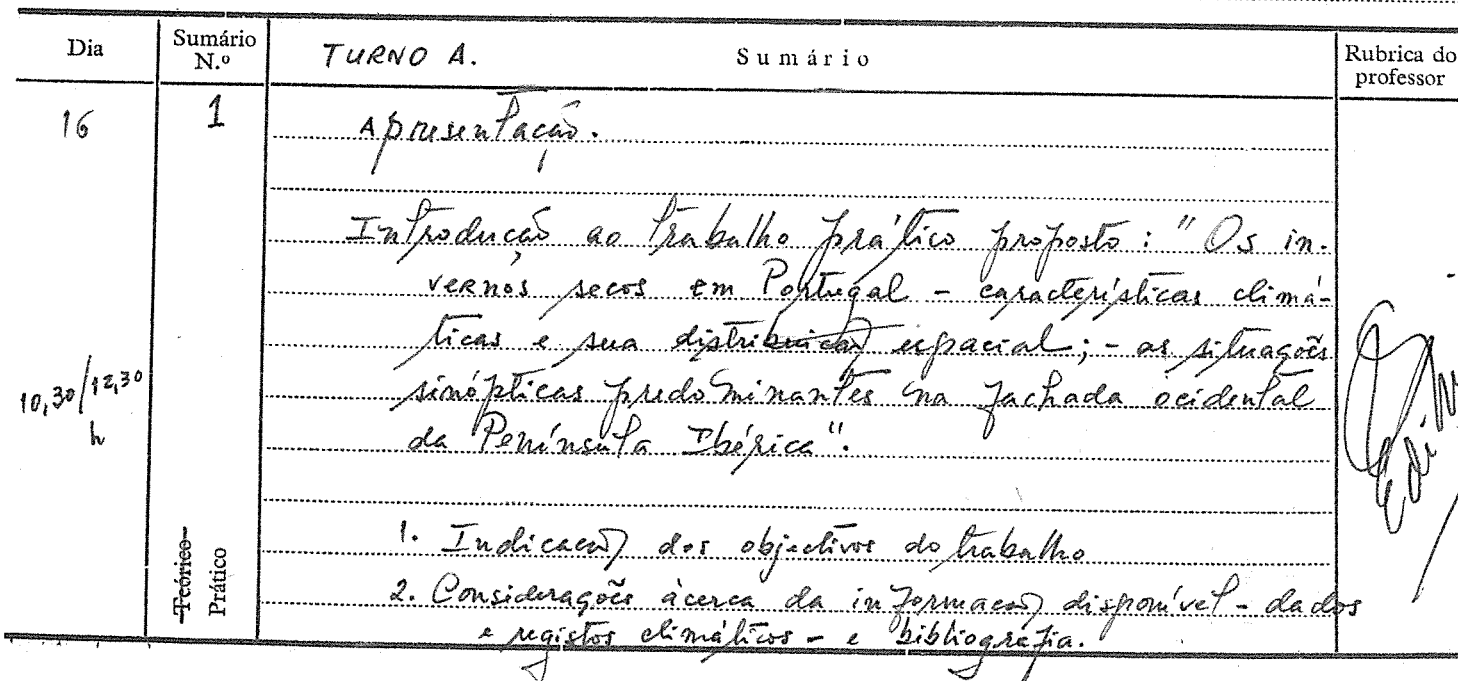 Dia
Sumário N.º
TURNO A. Sumário
Rubrica do professor
16
1
Apresentação.
Introdução ao trabalho prático proposto: "Os in-
vernos secos em Portugal - características climá-
ticas e sua distribuição espacial; - as situações
10,30/12,30 h
sinópticas predominantes na fachada ocidental
da Península Ibérica".
Teórico
Prático
1. Indicação dos objectivos do trabalho
2. Considerações àcerca da informação disponível - dados
e registos climáticos - e bibliografia.